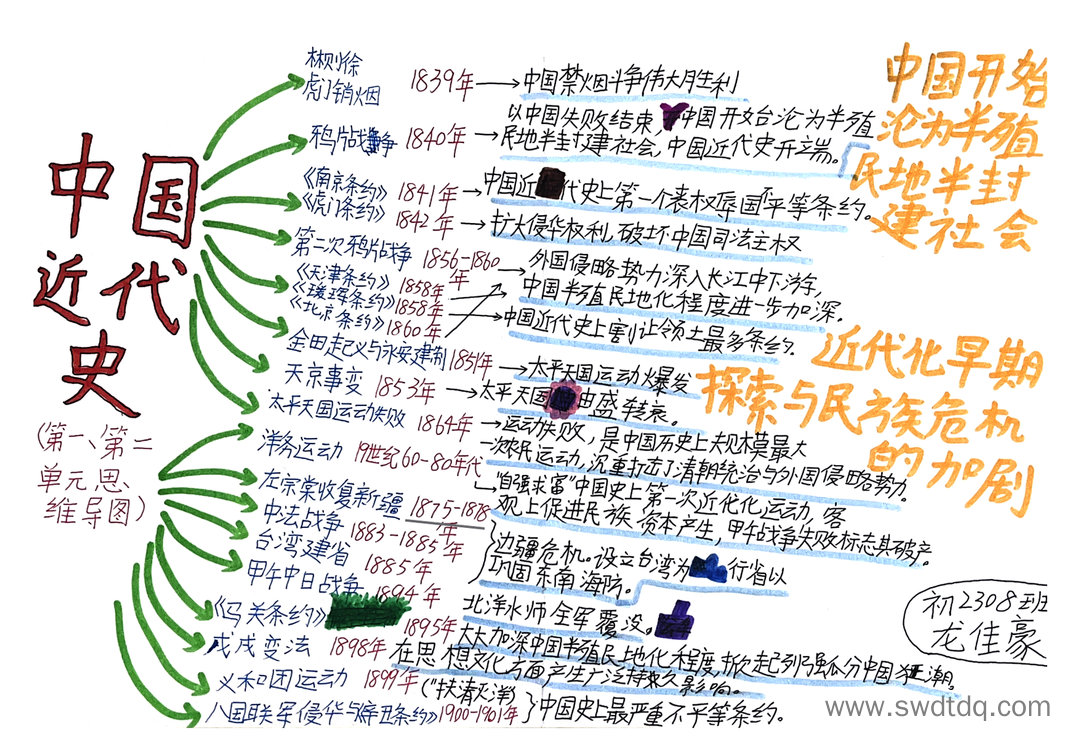 中国
近代
史
(第一、第二
单元思
维导图)
林则徐
虎门销烟 1839年 → 中国禁烟斗争伟大胜利
鸦片战争 1840年 → 以中国失败结束,中国开始沦为半殖
民地半封建社会,中国近代史开端。
《南京条约》 1841年 → 中国近代史上第一个丧权辱国不平等条约。
《虎门条约》 1842年 → 扩大侵华权利,破坏中国司法主权
第二次鸦片战争 1856-1860年
《天津条约》 1858年 → 外国侵略势力深入长江中下游,
《瑷珲条约》 1858年 → 中国半殖民地化程度进一步加深。
《北京条约》 1860年 → 中国近代史上割让领土最多条约。
金田起义与永安建制 1851年 → 太平天国运动爆发
天京事变 1853年 → 太平天国由盛转衰。
太平天国运动失败 1864年 → 运动失败,是中国历史上规模最大
一次农民运动,沉重打击了清朝统治与外国侵略势力。
洋务运动 19世纪60-80年代 → "自强求富"中国史上第一次近代化运动,客
观上促进民族资本产生,甲午战争失败标志其破产。
左宗棠收复新疆 1875-1878年
中法战争 1883-1885年
台湾建省 1885年
边疆危机。设立台湾为行省以
巩固东南海防。
甲午中日战争 1894年
北洋水师全军覆没。
《马关条约》 1895年 大大加深中国半殖民地化程度,掀起列强瓜分中国狂潮。
戊戌变法 1898年 在思想文化方面产生广泛持久影响。
义和团运动 1899年 ("扶清灭洋)
八国联军侵华与《辛丑条约》1900-1901年 }中国史上最严重不平等条约。
中国开始
沦为半殖
民地半封
建社会
近代化早期
探索与民族危机
的加剧
初2308班
龙佳豪
www.swdtdq.com